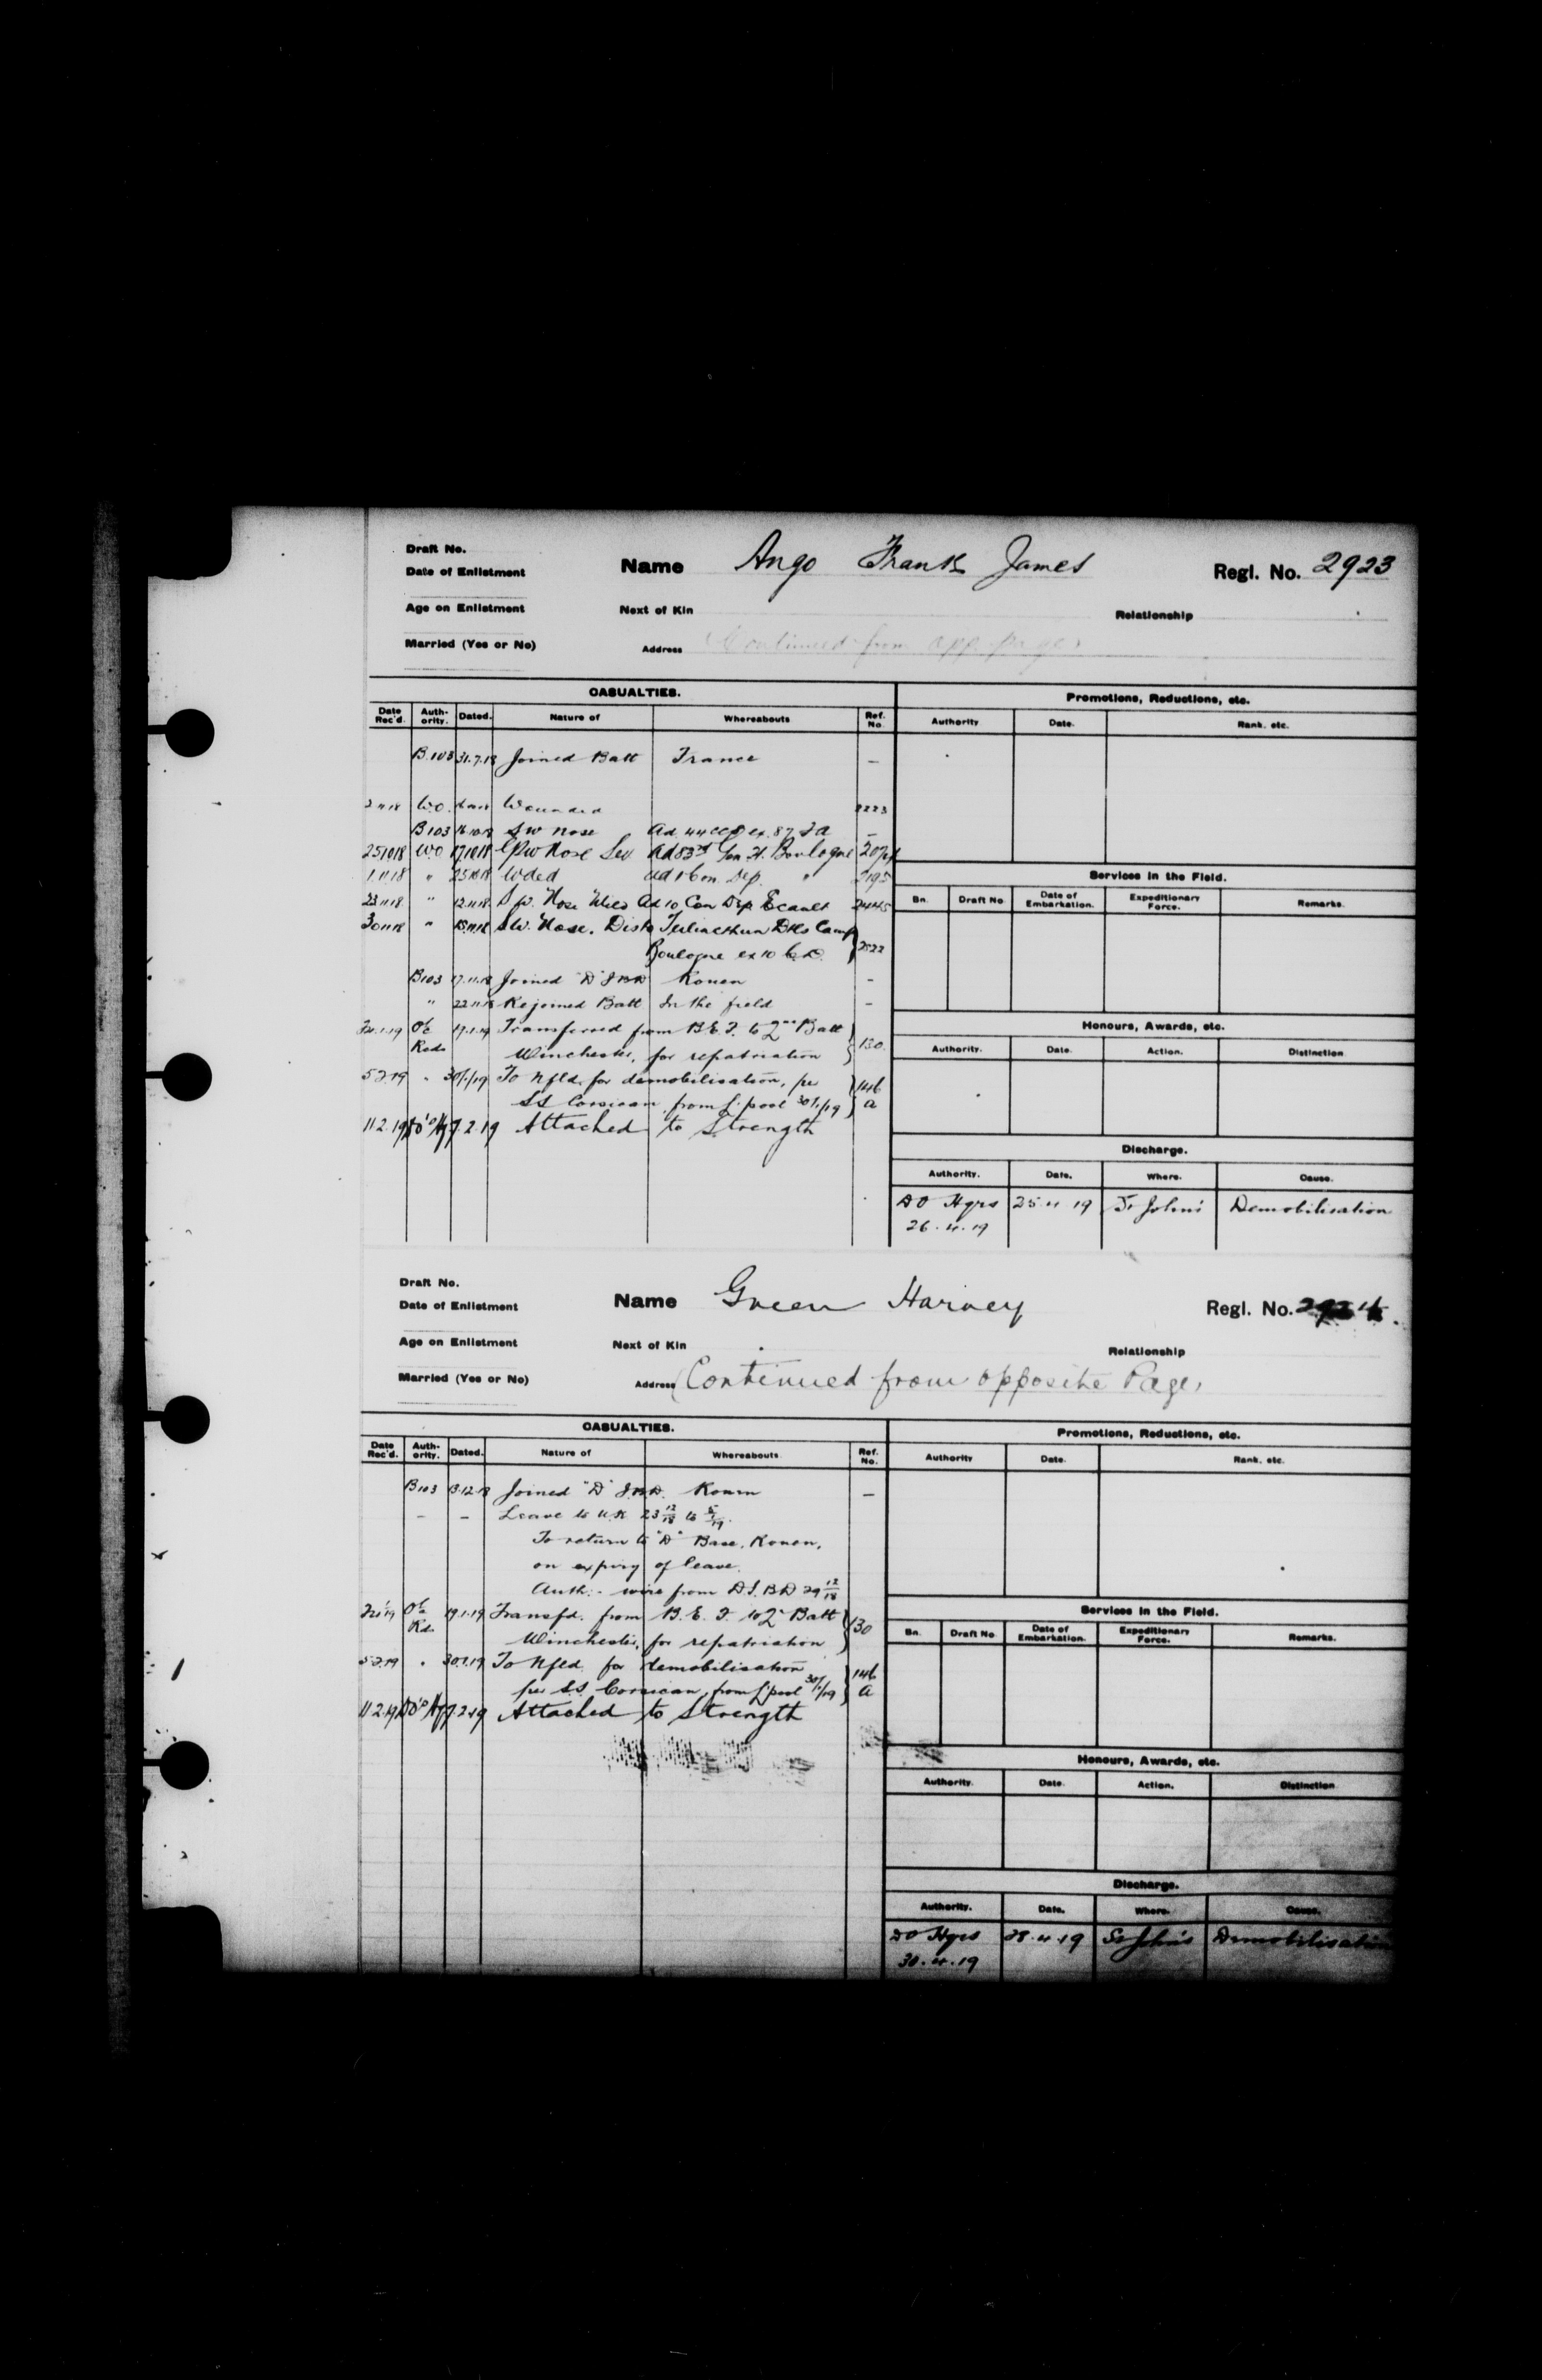 Draft No.
Date of Enlistment
Name Ango Frank James
Regl. No. 2923
Age on Enlistment
Next of Kin
Relationship
Married (Yes or No)
Address (Continued from opp. page)
CASUALTIES.
Promotions, Reductions, etc.
Date Rec'd. Auth-ority. Dated. Nature of Whereabouts Ref. No.
Authority Date. Rank. etc.
B.103 31.7.18 Joined Batt France —
2 11 18 W.O. Wounded 2223
B103 16.10.18 S W nose Ad. 44 CCS ex. 87 F A —
25 10 18 W.O 17 10 18 G S W Nose Sev Ad 83rd Gen H. Boulogne
1.11.18 " 25.10.18 Wded Ad 1 Con. Dep. " 2195
23 11 18 " 12.11.18 S W. Nose Ad 10 Con Dep Ecault 2445
30 11 18 " S W. Nose. Dis to Terlincthun Dtls Camp
Boulogne ex 10 C.D. 2522
B103 17.11.18 Joined "D" I.B.D Rouen -
" 22.11.18 Rejoined Batt In the field -
19.1.19 Transferred from B.E.F. to 2nd Batt
Recds Winchester, for repatriation 130
5.2.19 " 30/1/19 To Nfld. for demobilisation, per 146
SS Corsican from L'pool 30/1/19 a
11 2.19 7.2.19 Attached to Strength
Services in the Field.
Bn. Draft No Date of Embarkation. Expeditionary Force. Remarks.
Honours, Awards, etc.
Authority. Date. Action. Distinction
Discharge.
Authority. Date. Where. Cause.
DO Hqrs 25.4.19 St John's Demobilisation
26.4.19
Draft No.
Date of Enlistment
Name Green Harvey
Regl. No. 2924
Age on Enlistment
Next of Kin
Relationship
Married (Yes or No)
Address (Continued from opposite Page)
CASUALTIES.
Promotions, Reductions, etc.
Date Rec'd. Auth-ority. Dated. Nature of Whereabouts Ref. No.
Authority Date. Rank. etc.
B103 13.12.18 Joined "D" I.B.D. Rouen —
– – Leave to U.K 23 12/18 to
To return to "D" Base, Rouen,
on expiry of leave.
Auth:- wire from D I. B D 29 12/18
19.1.19 Transfd. from B. E. F. to 2 Batt
Winchester, for repatriation 130
5.2.19 " 30.1.19 To Nfld. for demobilisation 146
per S.S. Corsican, from L'pool 30/1/19 a
11 2.19 7.2.19 Attached to Strength
Services in the Field.
Bn. Draft No Date of Embarkation. Expeditionary Force. Remarks.
Honours, Awards, etc.
Authority. Date. Action. Distinction
Discharge.
Authority. Date. Where. Cause.
DO Hqrs 28.4.19 St John's Demobilisation
30.4.19